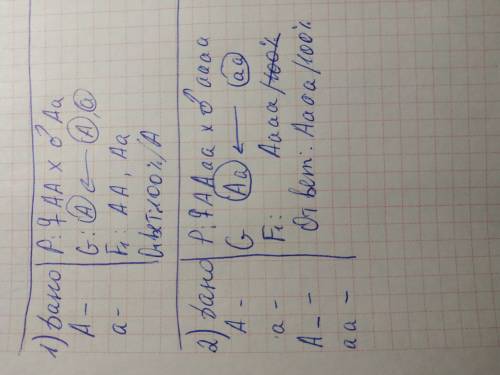 1) Дано
А –
а –
P: ♀ АА х ♂ Аа
G: А ← А, а
F₁: АА, Аа
Ответ: 100%/А
2) Дано
А –
а –
А – –
аа –
P: ♀ ААаа х ♂ аааа
G Аа ← аа
F₁: Аааа/100%
Ответ: Аааа/100%